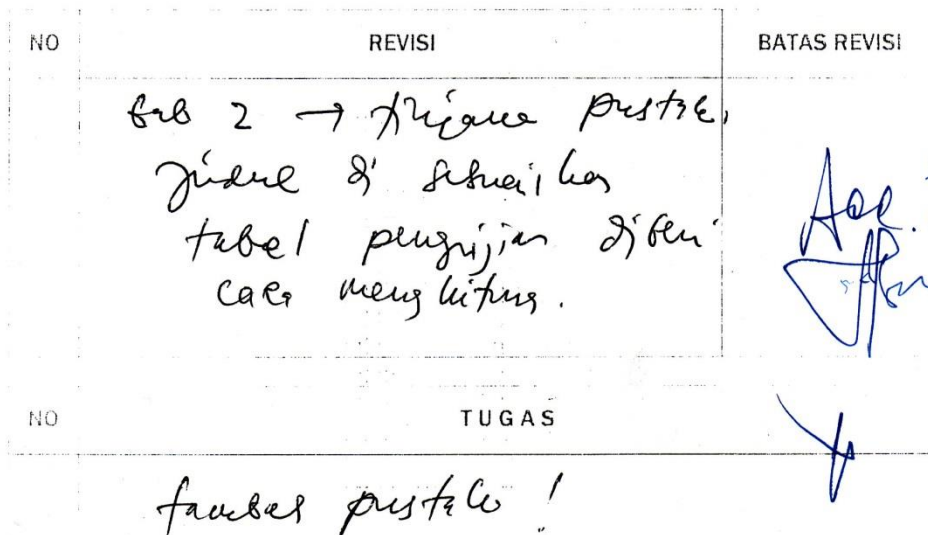 NO REVISI BATAS REVISI
bab 2 → tinjauan pustaka,
judul di sesuaikan
tabel pengujian diberi
cara menghitung.
Acc.
NO TUGAS
tambah pustaka !